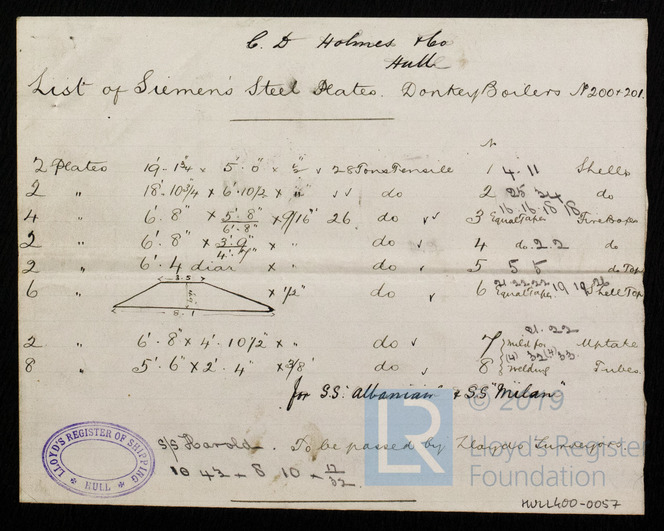 C. D Holmes & Co
Hull
List of Siemen's Steel Plates. Donkey Boilers No 200 & 201.
No
2 Plates 19'-1 3/4 x 5'.0" x 1/2" 28 Tons Tensile 1 4.11 Shells
2 " 18'.10 3/4 x 6'.10 1/2 x " do 2 25 24 do
4 " 6'.8" x 5'.8"/6'.8" x 9/16" 26 do 3 Equal Taper 16.16.18 18 Fire Boxes
2 " 6'.8" x 3'.9"/4'.4" x " do 4 do 22 do
2 " 6'.4 diar x " do 5 5 5 do Top
6 " 3.5 8.1 x 1/2" do 6 Equal Taper 21 22 22 19 19 26 Shell Top
2 " 6'.8" x 4'.10 1/2" x " do 7 21.22 Mild for Uptake
8 " 5'.6" x 2'.4" x 3/8' do 8 (4) 32 (4) 33 Welding Tubes
for S.S. "Albanian" & S.S "Milan"
S/S Harold. To be passed by Lloyds Surveyors
10 42 + 8 10 + 12/32
LLOYD'S REGISTER OF SHIPPING
HULL
© 2019
LR
Lloyd's Register
Foundation
HULL400-0057